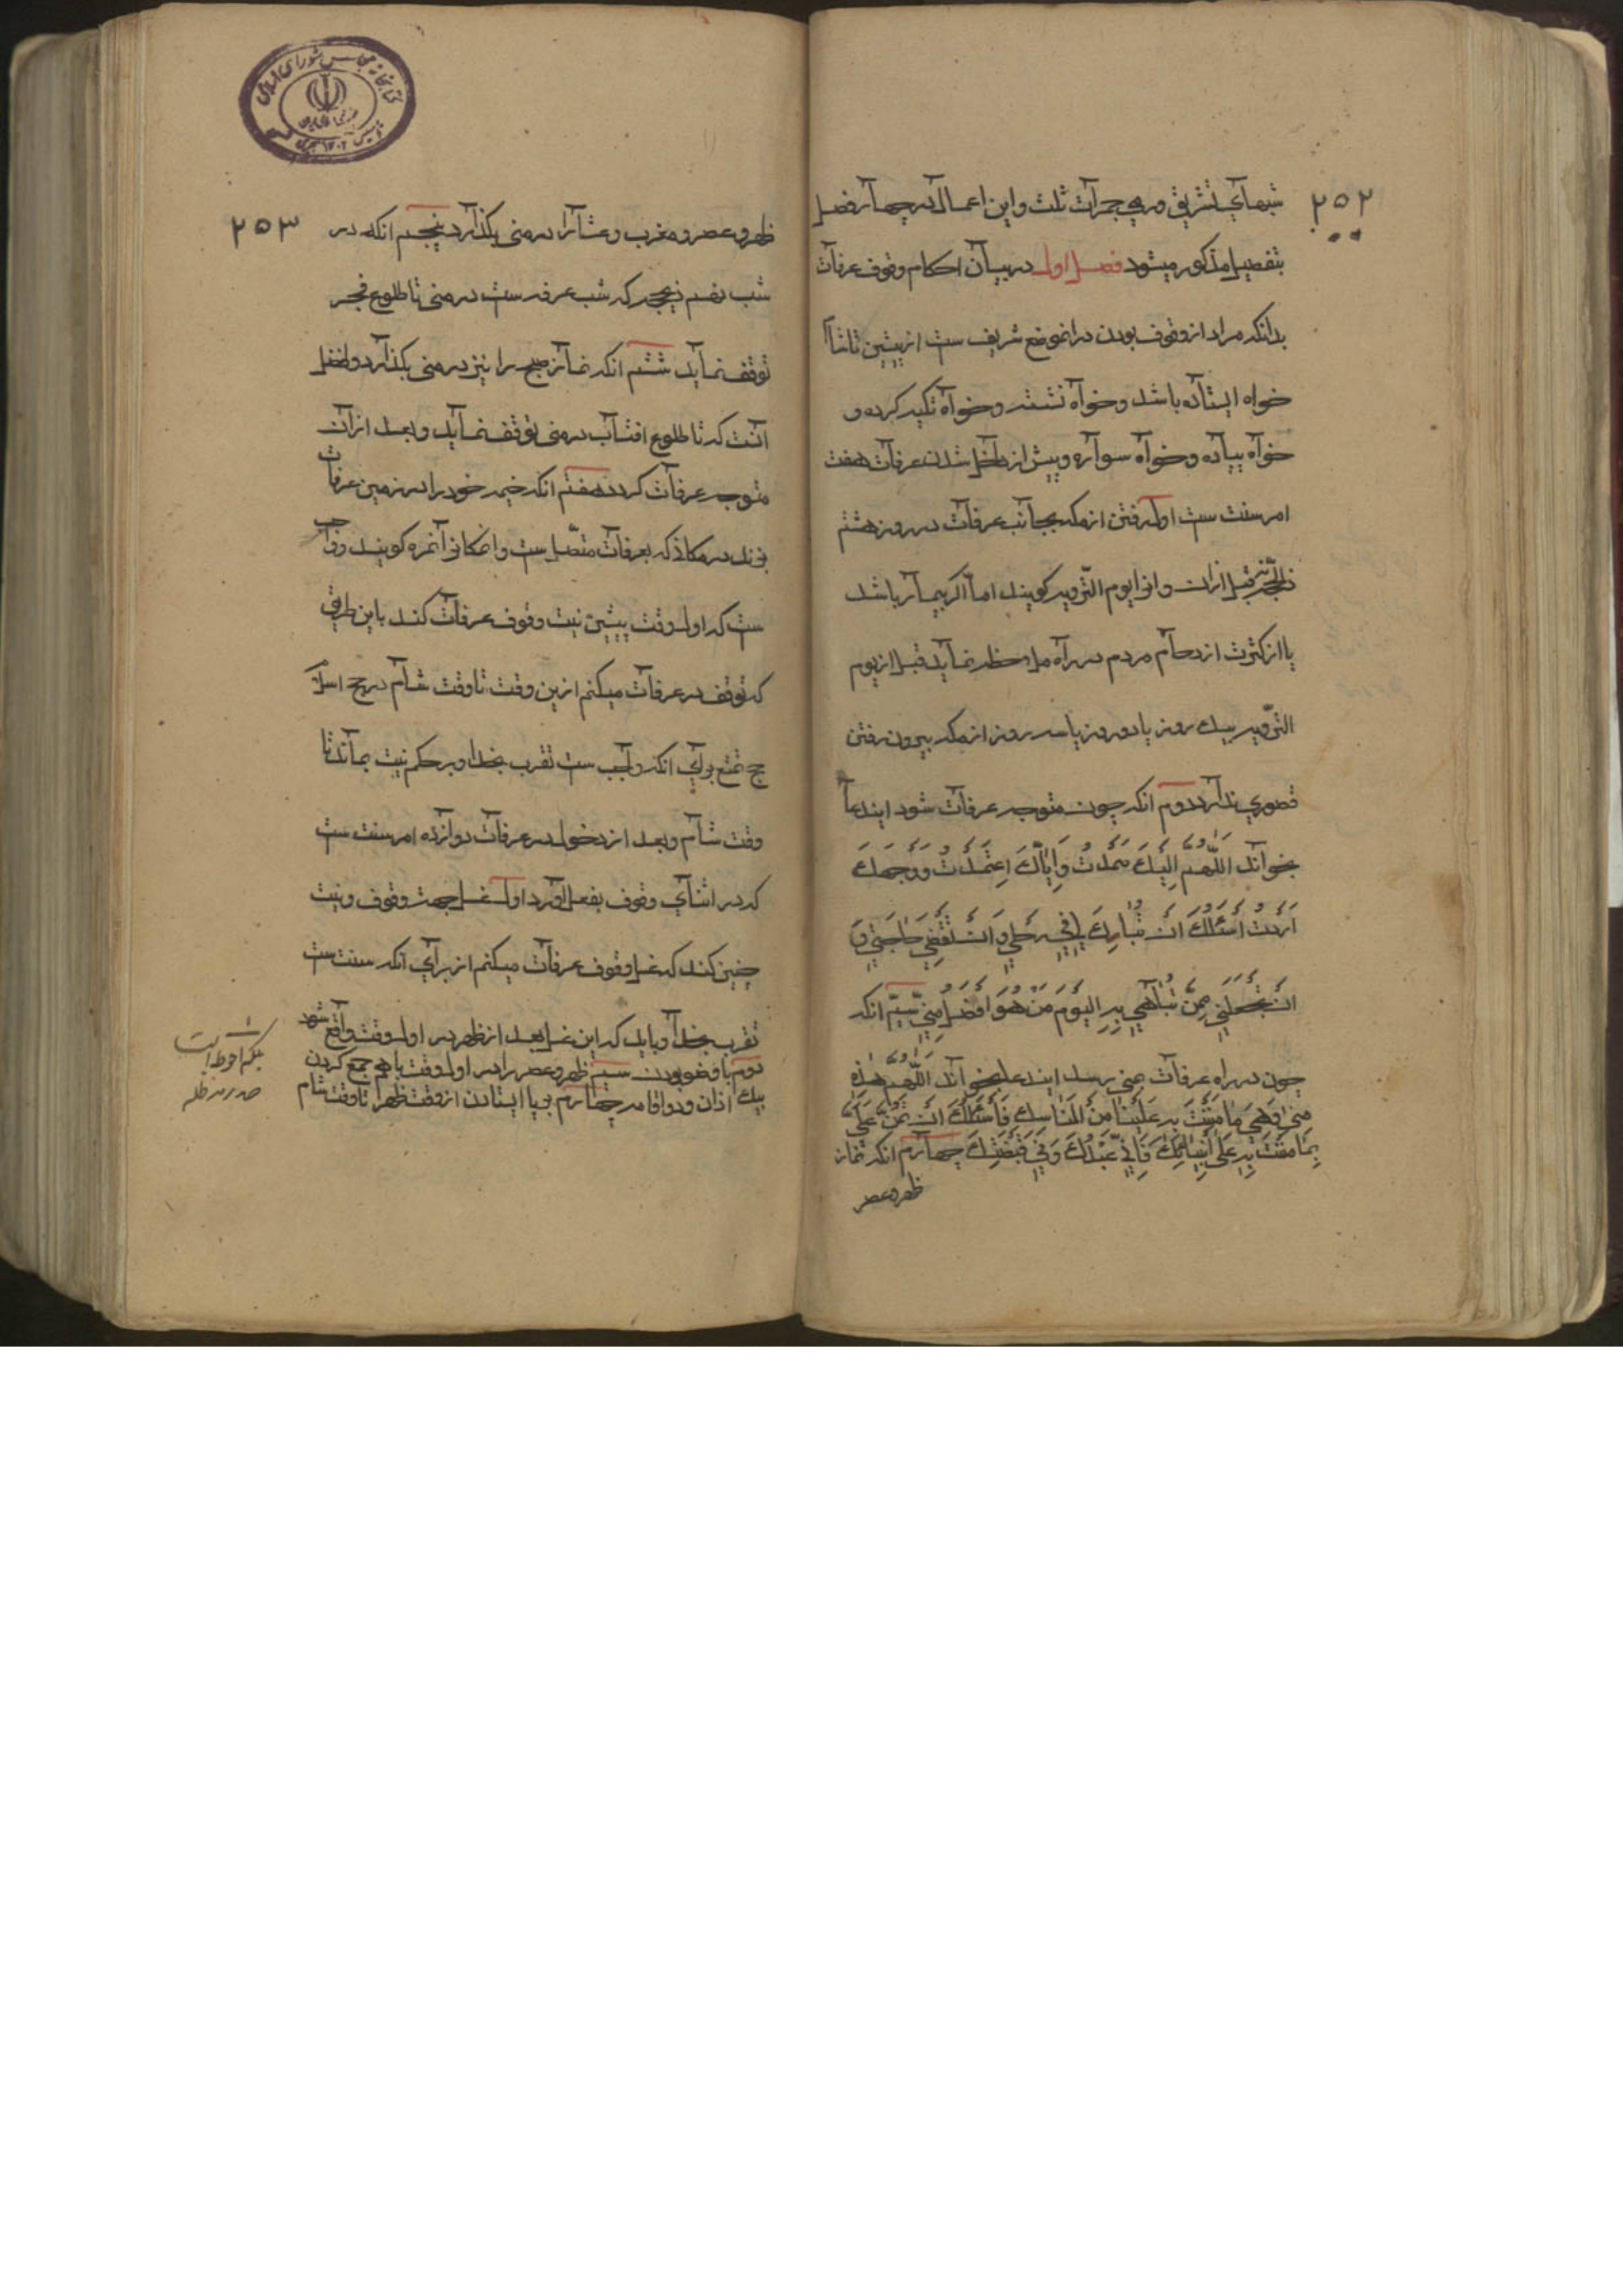 ۲۵۲
شبهای تشریق و رمی جمرات ثلث و این اعمال در چهار فصل
بتفصیل مذکور میشود فصل اول در بیان احکام وقوف عرفات
بدانکه مراد از وقوف بودن در انموضع شریف ست از پیشین تا شام
خواه ایستاده باشد و خواه نشسته و خواه تکیه کرده و
خواه پیاده و خواه سواره و پیش از داخل شدن عرفات هفت
امر سنت ست اول رفتن از مکه بجانب عرفات در روز هشتم
ذی الحجه قبل ازان و انرا یوم الترویه کویند اما اکر بیمار باشد
یا از کثرت ازدحام مردم در راه ملاحظه نماید قبل از یوم
الترویه بیک روز یا دو روز یا سه روز از مکه بیرون رفتن
قصوری ندارد دوم انکه چون متوجه عرفات شود ایندعا
بخواند اَللّٰهُمَّ اِلَیْكَ صَمَدْتُ وَاِیَّاكَ اعْتَمَدْتُ وَ وَجْهَكَ
اَرَدْتُ اَسْئَلُكَ اَنْ تُبَارِكَ لِی فِی رِحْلَتِی وَ اَنْ تَقْضِیَ حَاجَتِی وَ
اَنْ تَجْعَلَنِی مِمَّنْ تُبَاهِی بِهِ الْیَوْمَ مَنْ هُوَ اَفْضَلُ مِنِّی سیّم انکه
چون در راه عرفات بمنی رسد ایندعا بخواند اَللّٰهُمَّ هٰذِهِ
مِنیٰ وَهِیَ مَا مَنَنْتَ بِهِ عَلَیْنَا مِنَ الْمَنَاسِكِ فَاَسْئَلُكَ اَنْ تَمُنَّ عَلَیَّ
بِمَا مَنَنْتَ بِهِ عَلیٰ اَنْبِیَائِكَ فَاِنِّی عَبْدُكَ وَفِی قَبْضَتِكَ چهارم انکه نماز
ظهر و عصر
۲۵۳
ظهر و عصر و مغرب و عشا را در منی بکذارد پنجم انکه در
شب نهم ذیحجه که شب عرفه ست در منی تا طلوع فجر
توقف نماید ششم انکه نماز صبح را نیز در منی بکذارد و افضل
آنست که تا طلوع افتاب در منی توقف نماید و بعد ازان
متوجه عرفات کردد هفتم انکه خیمه خود را در زمین عرفات
بزند در مکانی که بعرفات متصل ست و انمکانرا نمره کویند و واجب
ست که اول وقت پیشین نیت وقوف عرفات کند باین طریق
که توقف در عرفات میکنم ازین وقت تا وقت شام در حج اسلام
حج تمتع برای انکه واجب ست تقرب بخدا و بر حکم نیت بماند تا
وقت شام و بعد از دخول در عرفات دوازده امر سنت ست
که در اثنای وقوف بفعل آورد اول غسل جهت وقوف و نیت
چنین کند که غسل وقوف عرفات میکنم از برای آنکه سنت ست
تقرب بخدا و باید که این غسل بعد از ظهر در اول وقت واقع شود
دوم با وضو بودن سیم ظهر و عصر را در اول وقت باهم جمع کردن
بیك اذان و دو اقامه چهارم بر پا ایستادن از وقت ظهر تا وقت شام
بلکه احوط است
صدر مد ظله